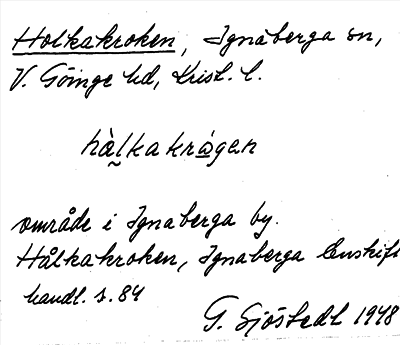 Holkakroken, Ignaberga sn,
V. Göinge hd, Krist. l.
hàlkakrågen
område i Ignaberga by.
Hålkakroken, Ignaberga Enskift
handl. s. 84
G. Sjöstedt 1948